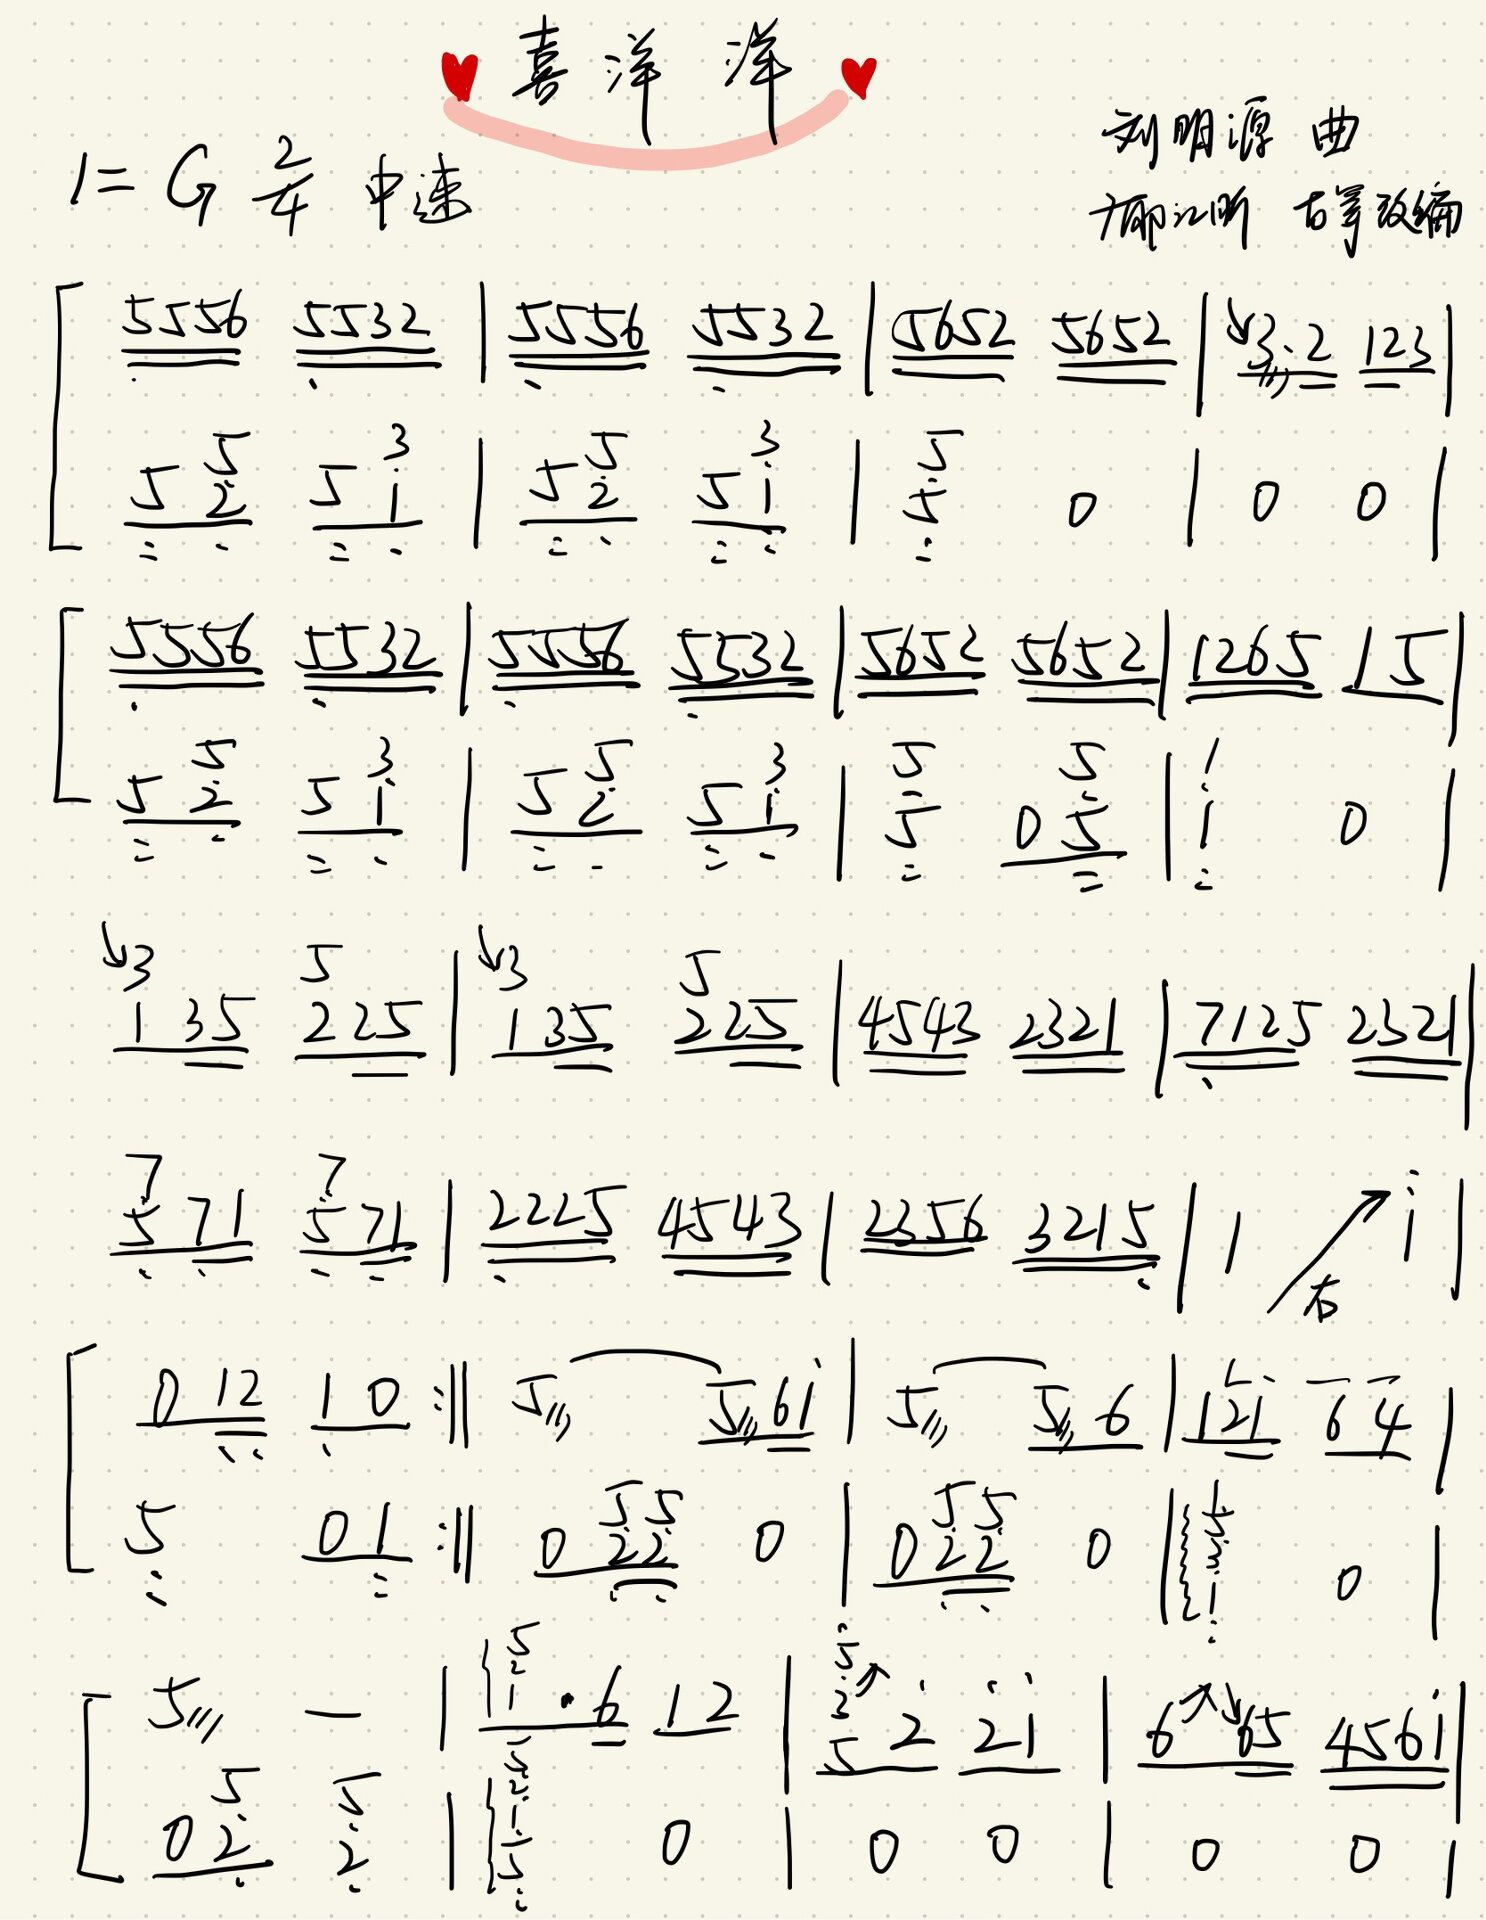 喜洋洋
1=G 2/4 中速
刘明源 曲
古筝改编
5556 5532 | 5556 5532 | 5652 5652 | 3·2 123 |
5 5/2 5 3/1 | 5 5/2 5 3/1 | 5/5 0 | 0 0 |
5556 5532 | 5556 5532 | 5652 5652 | 1265 15 |
5 5/2 5 3/1 | 5 5/2 5 3/1 | 5/5 0 5/5 | 1/1 0 |
3/1 35 5/2 25 | 3/1 35 5/2 25 | 4543 2321 | 7125 2321 |
7/5 71 7/5 71 | 2225 4543 | 2356 3215 | 1 右 i |
0 12 1 0 :|| 5 5 61 | 5 5 6 | 121 64 |
5 01 :|| 0 5/2 5/2 0 | 0 5/2 5/2 0 | 0 |
5 — | ·6 12 | 2 21 | 6 65 4561 |
0 5/2 5/2 | 0 | 0 0 | 0 0 |